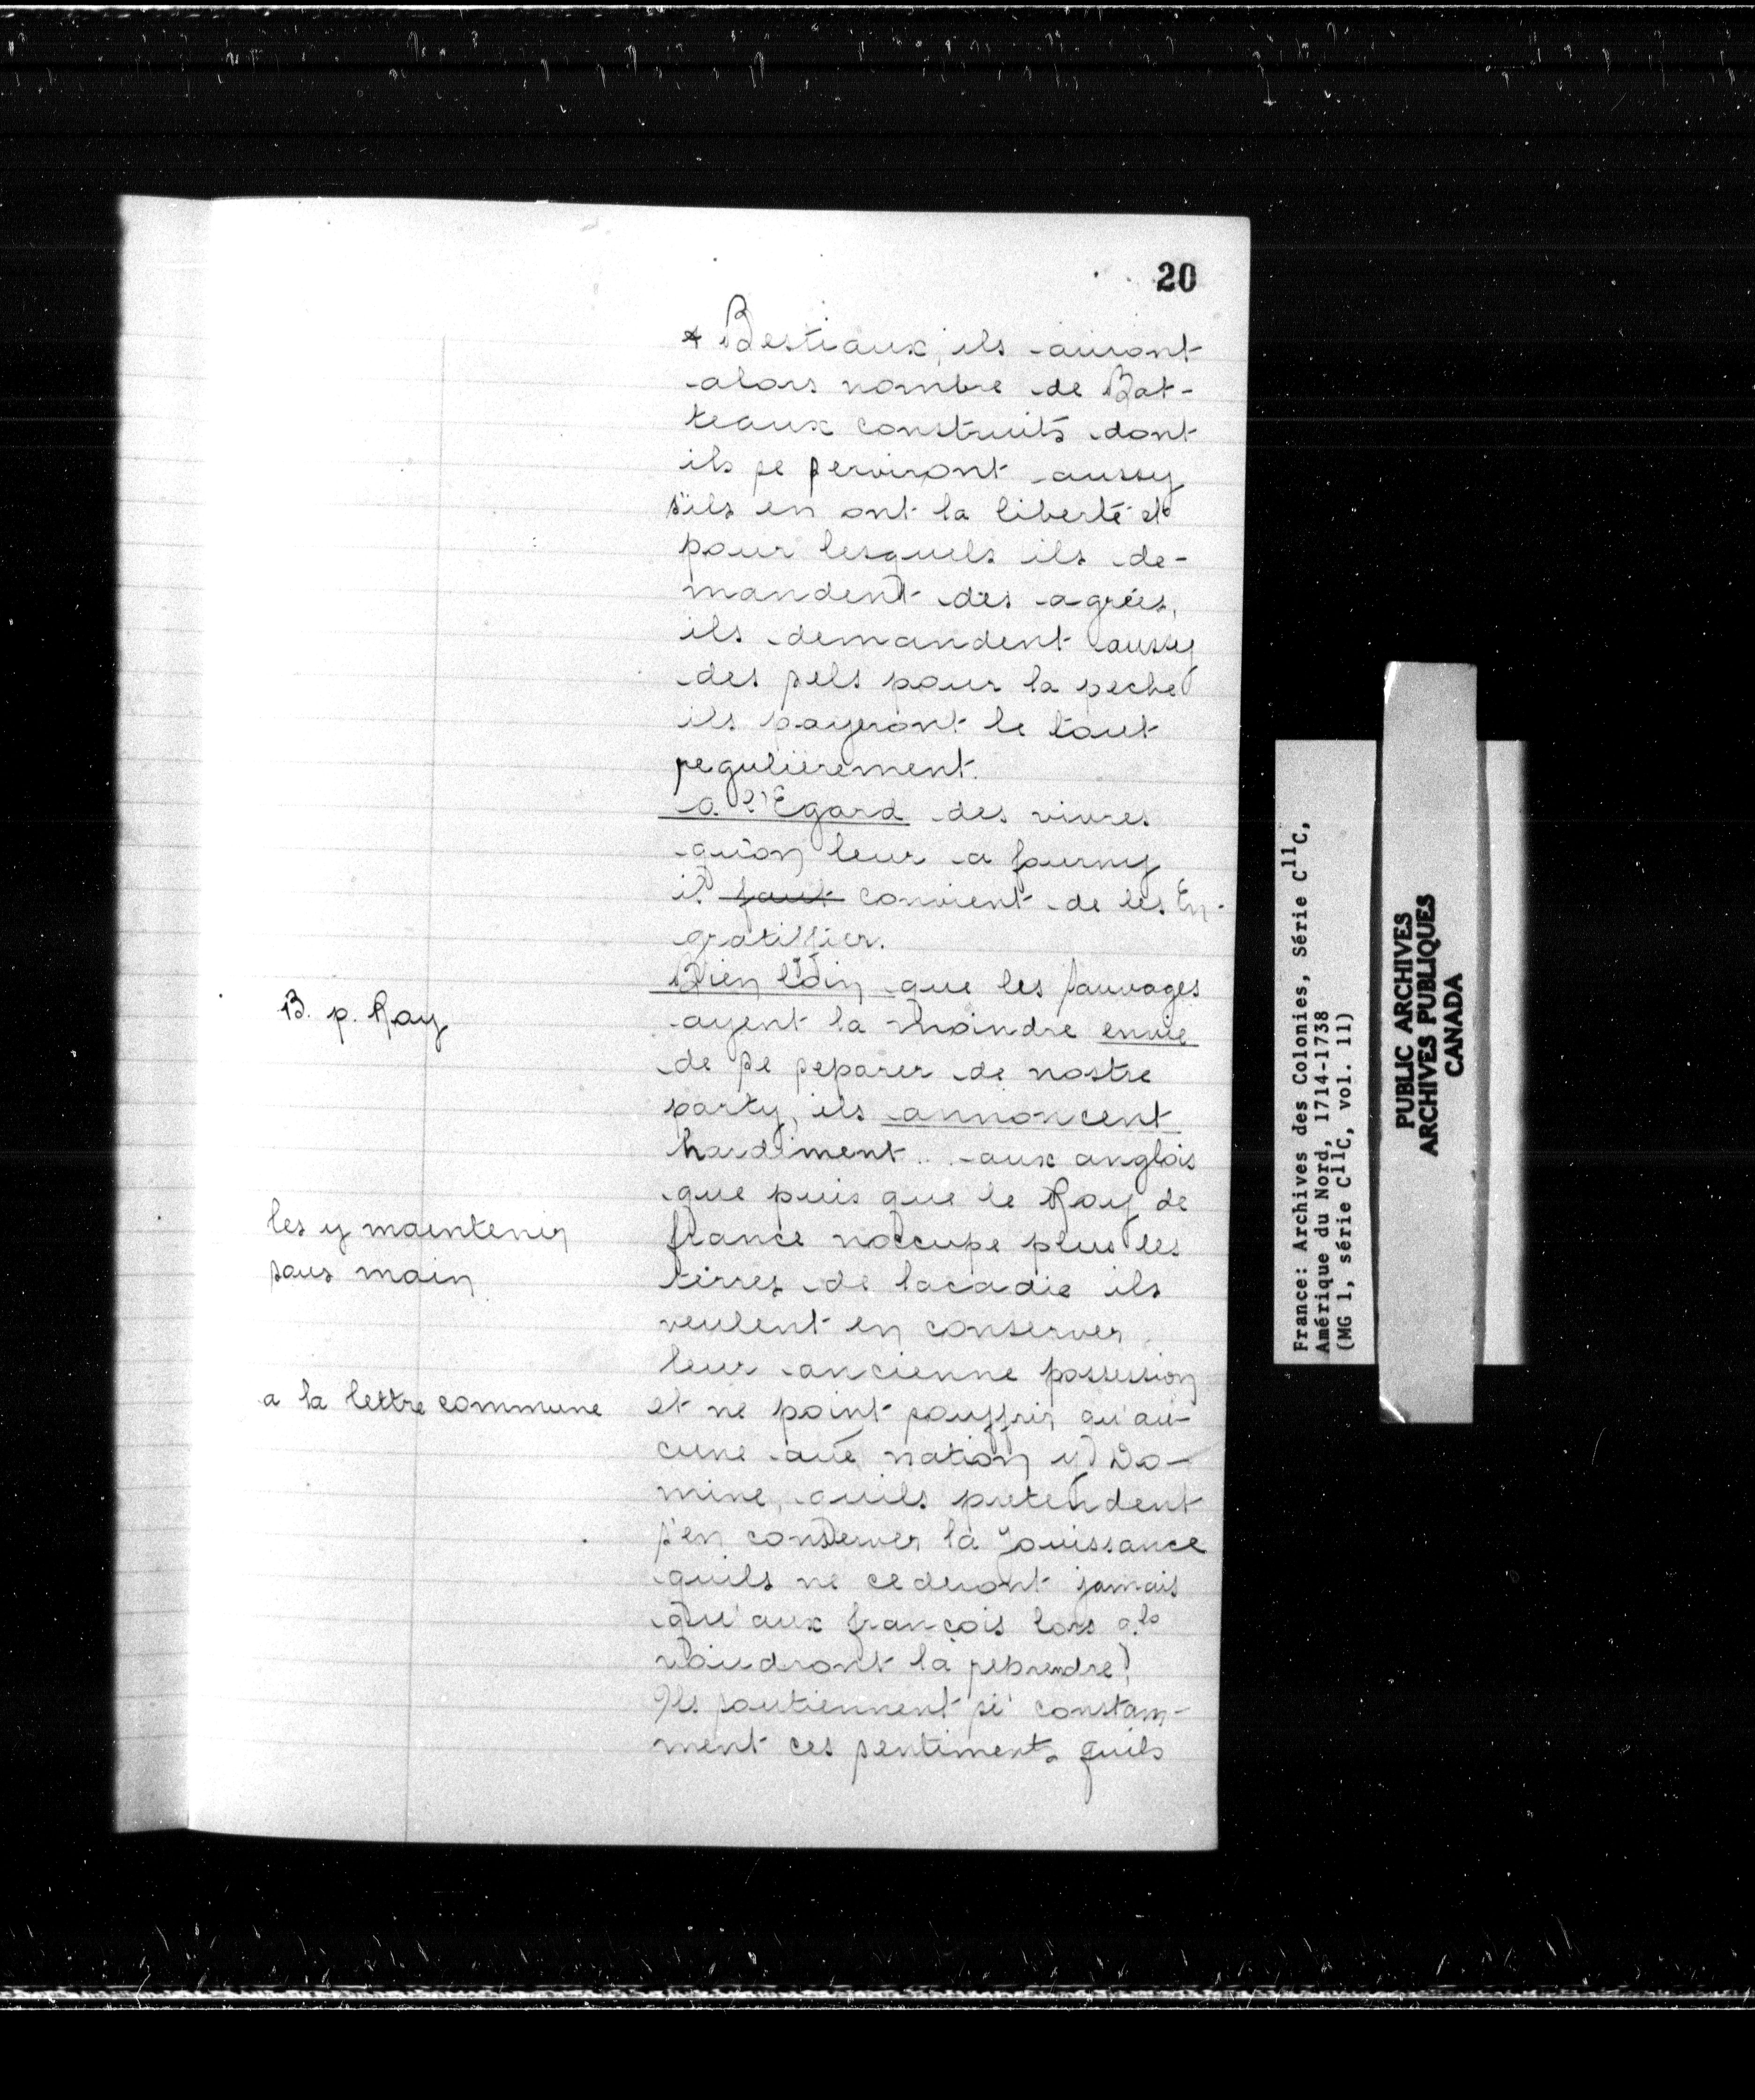 20
* Bestiaux, ils auront
alors nombre de Bat-
teaux construits dont
ils se serviront aussy
s'ils en ont la liberté et
pour lesquels ils de-
mandent des agrées,
ils demandent aussy
des sels pour la peche
ils payeront le tout
regulierement.
a l'Egard des vivres
qu'on leur a fourny
il faut convient de les En-
gratiffier.
Bien loin que les sauvages
B. p. Roy
ayent la moindre envie
de se separer de nostre
party, ils annoncent
hardiment .. aux anglois
que puis que le Roy de
les y maintenir
france noccupe plus les
sous main
terres de lacadie ils
veulent en conserver
leur ancienne possession
a la lettre commune
et ne point souffrir qu'au-
cune aûe nation y Do-
mine, quils pretendent
s'en conserver la Jouissance
quils ne cederont jamais
qu'aux françois lors qls
voudront la reprendre.
Ils soutiennent si constam-
ment ces sentiments quils
France: Archives des Colonies, Série C11C,
Amérique du Nord, 1714-1738
(MG 1, série C11C, vol. 11)
PUBLIC ARCHIVES
ARCHIVES PUBLIQUES
CANADA